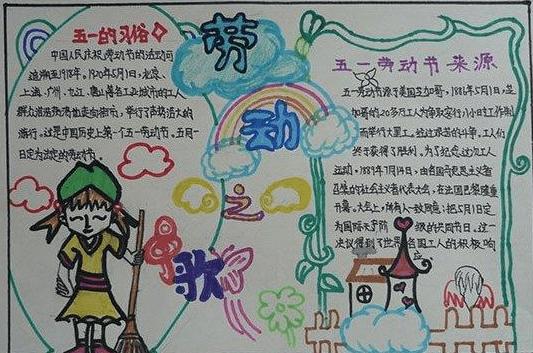 五一的习俗
中国人民庆祝劳动节的活动可
追溯至1918年。1920年5月1日，北京、
上海、广州、九江、唐山等各工业城市的工人
群众浩浩荡荡地走向街市，举行了声势浩大的
游行。这是中国历史上第一个五一劳动节。五月一
日定为法定的劳动节。
劳
动
之
歌
五一劳动节来源
五一劳动节源于美国芝加哥，1886年5月1日，芝
加哥的20多万工人为争取实行八小时工作制
而举行大罢工。经过艰苦的斗争，工人们
终于获得了胜利。为了纪念这次工人
运动，1889年7月14日，由各国马克思主义者
召集的社会主义者代表大会，在法国巴黎隆重
开幕。大会上，所有人一致同意：把5月1日定
为国际无产阶级的共同节日。这一
决议得到了世界各国工人的积极响
应。